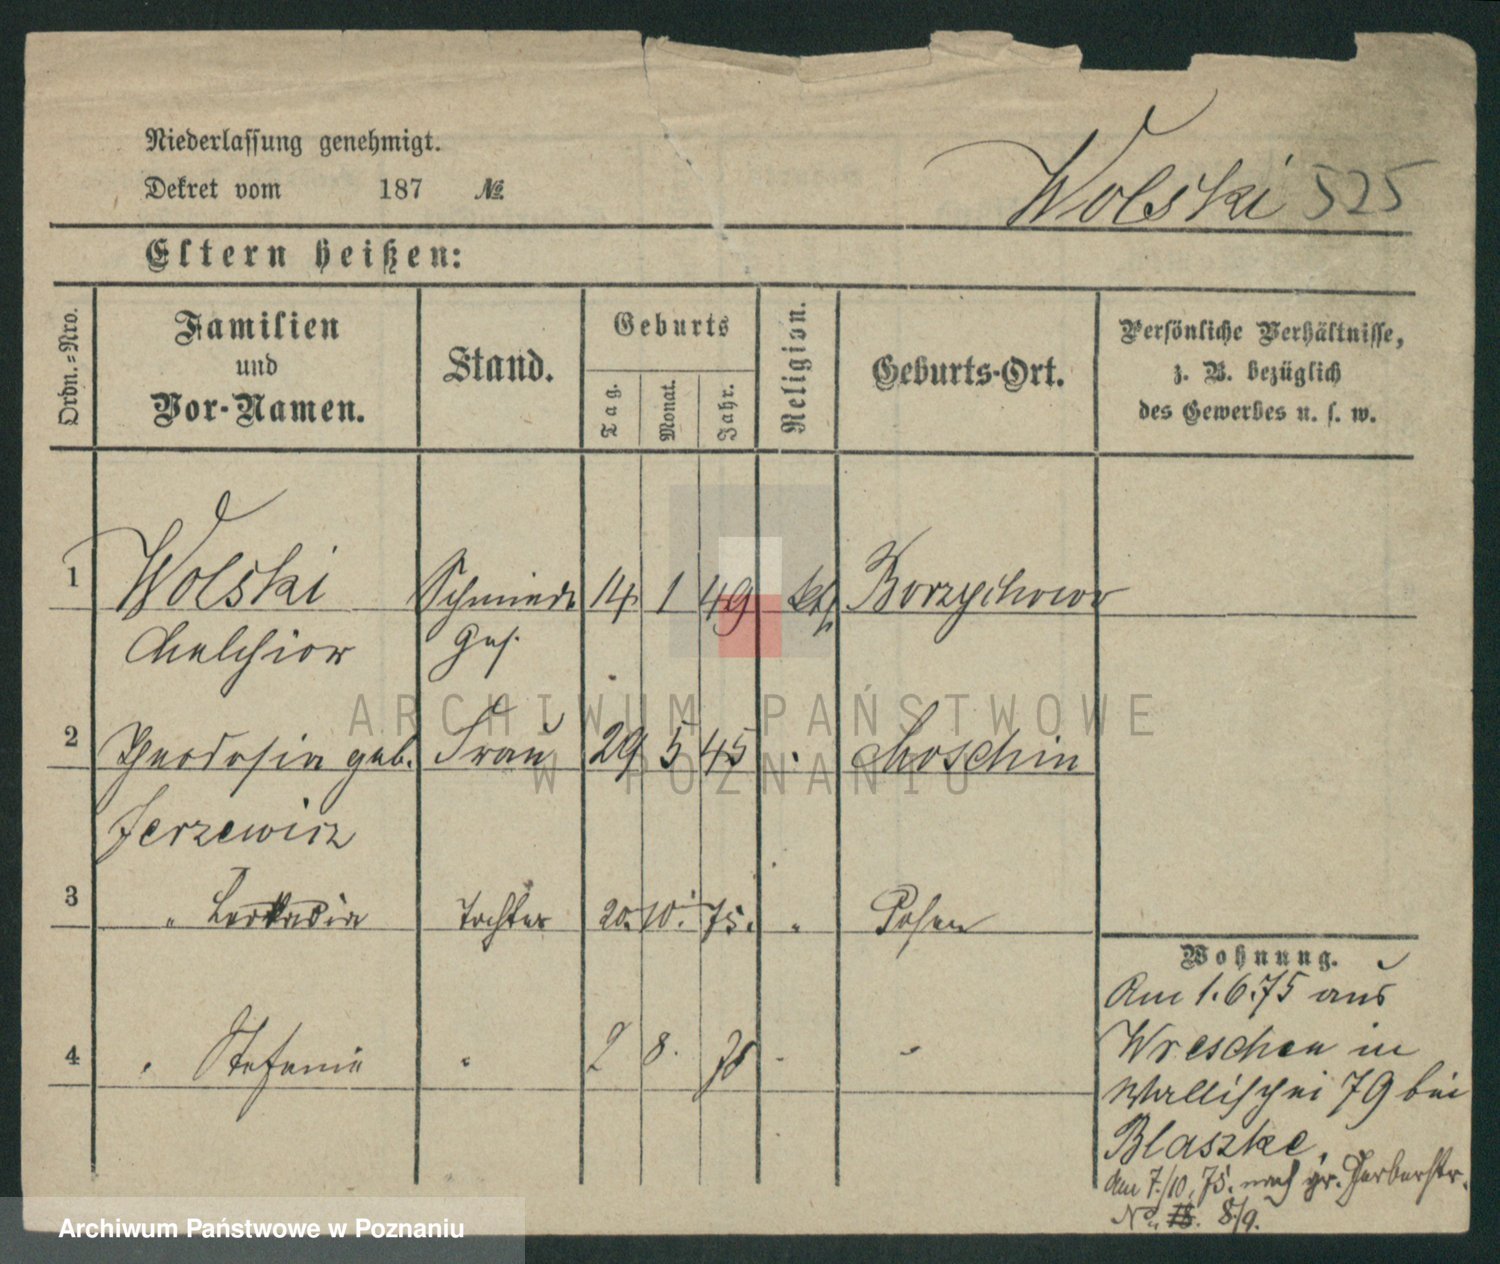 Niederlassung genehmigt.
Dekret vom 187 №
Wolski 525
Eltern heißen:
Ordn.-Nro.
Familien
und
Vor-Namen.
Stand.
Geburts
Tag.
Monat.
Jahr.
Religion.
Geburts-Ort.
Persönliche Verhältnisse,
z. B. bezüglich
des Gewerbes u. s. w.
1 Wolski Schmiede 14 1 49 kth Borzychowo
Melchior Ges.
2 Theodosia geb. Frau 29 5 45 " Moschin
Jerzewicz
3 " Leokadia Tochter 20. 10. 75. " Posen
4 " Stefania " 2 8. 78 " "
Wohnung.
Am 1.6.75 aus
Wreschen in
Wallischei 79 bei
Blaszke,
den 7./10. 75. nach gr. Gerberstr.
No. 8/9.
ARCHIWUM PAŃSTWOWE
W POZNANIU
Archiwum Państwowe w Poznaniu